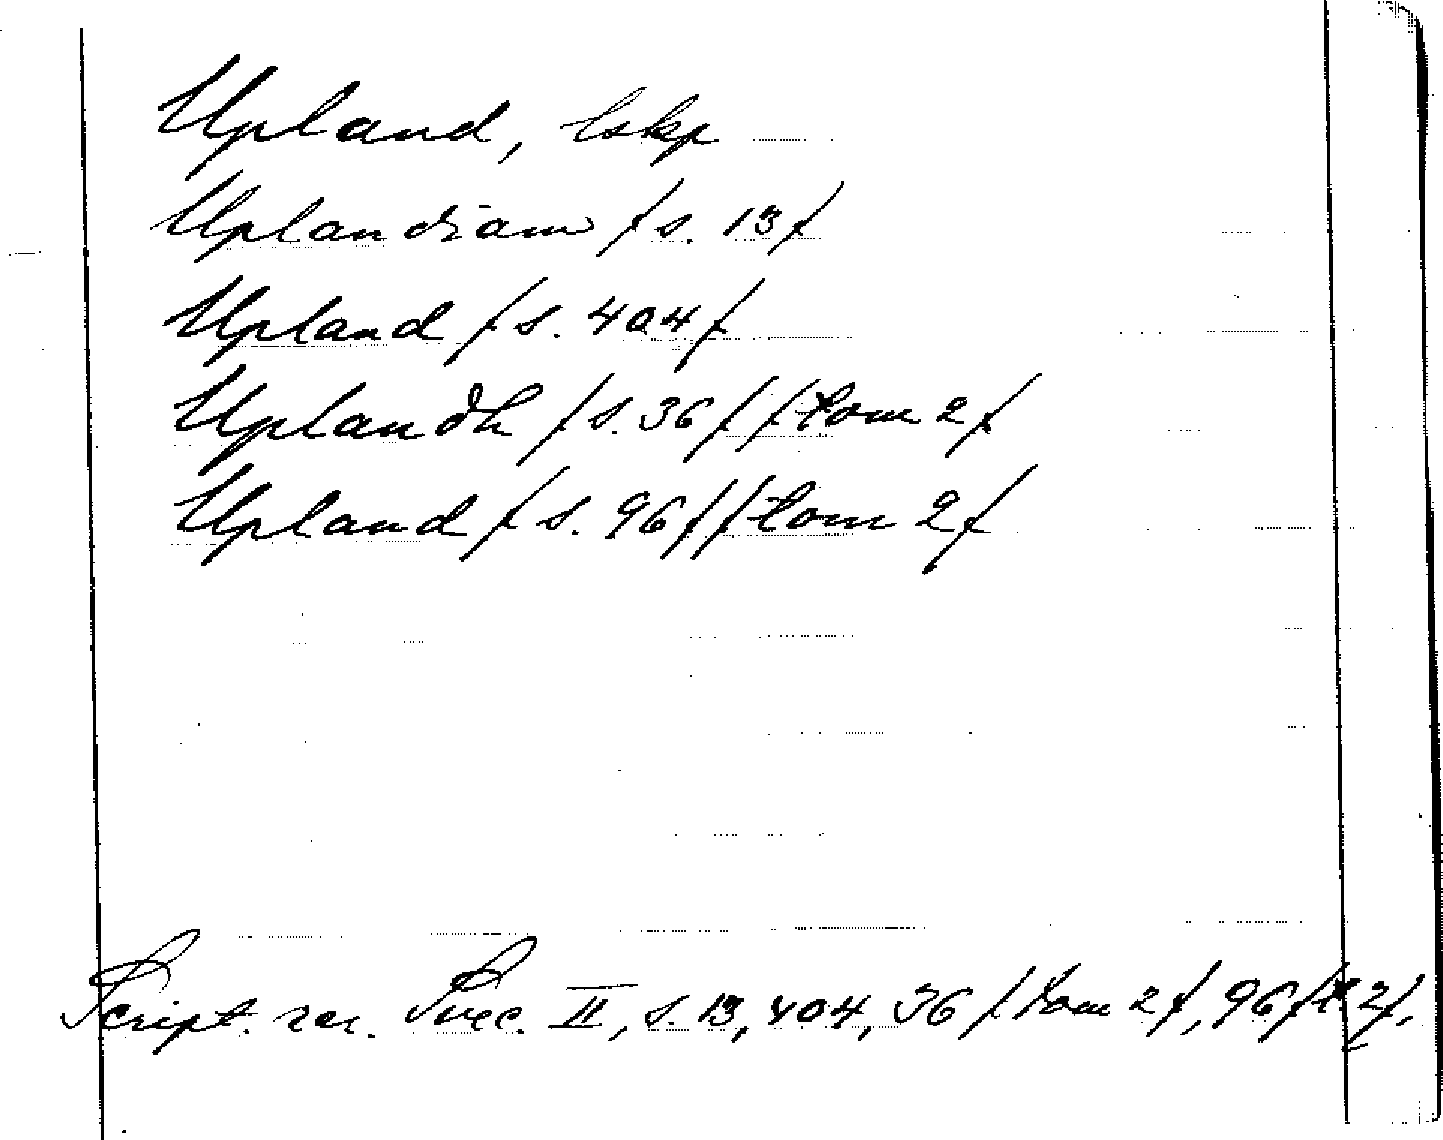 Upland, lskp
Uplandiam /s. 13/
Upland /s. 404/
Uplandh /s. 36/ /tom 2/
Upland /s. 96/ /tom 2/
Script. rer. Svec. II, s. 13, 404, 36 /tom 2/, 96 /t. 2/,